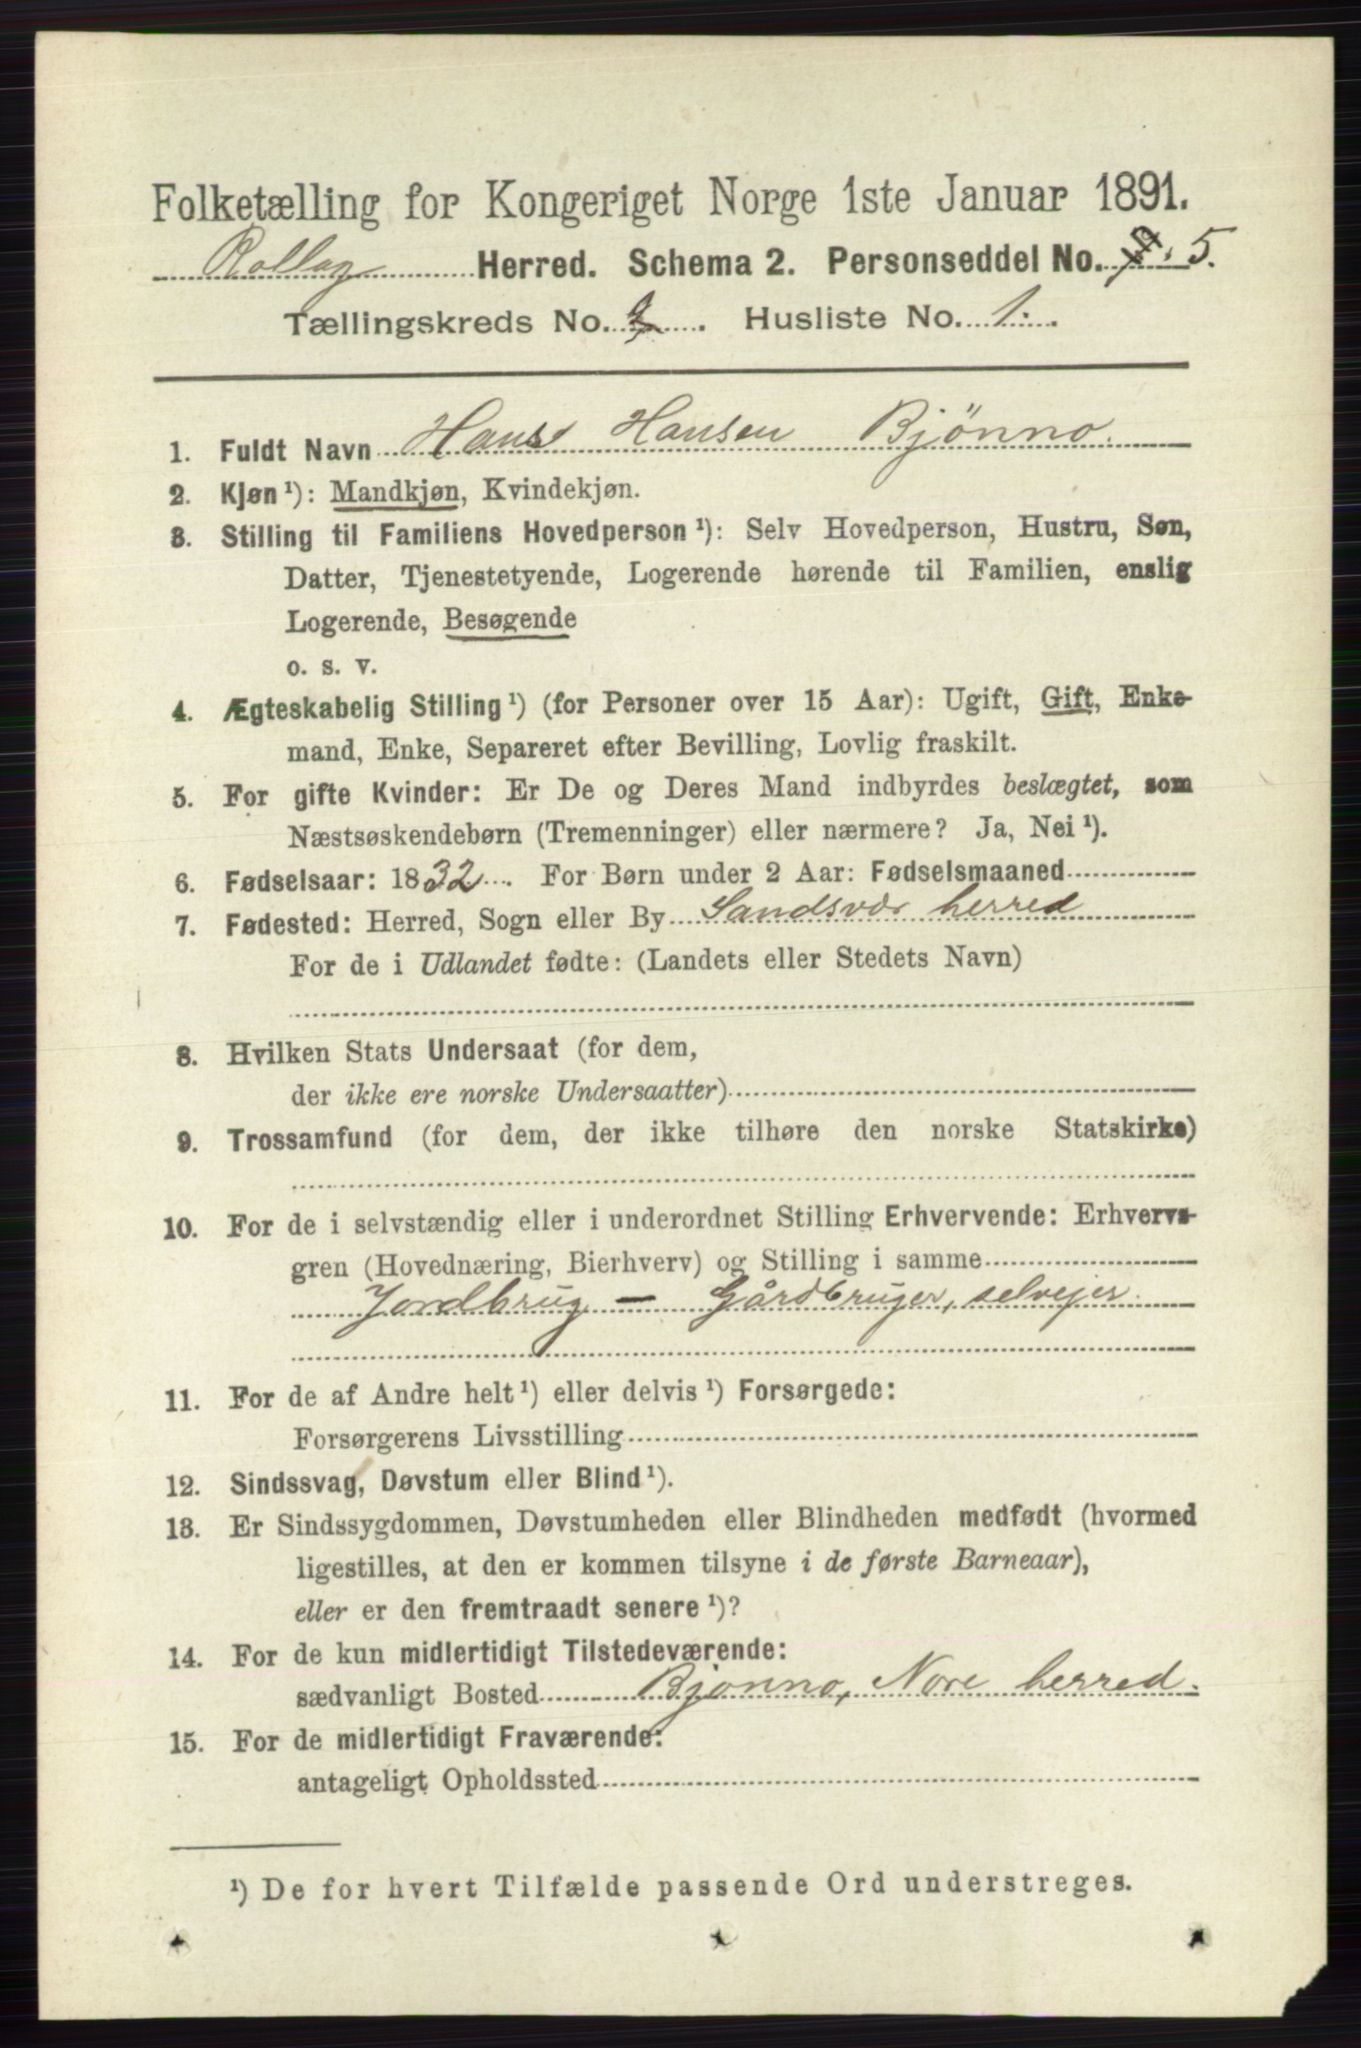 Folketælling for Kongeriget Norge 1ste Januar 1891.
Rollag Herred. Schema 2. Personseddel No. 5.
Tællingskreds No. Husliste No. 1.
1. Fuldt Navn Hans Hansen Bjønno.
2. Kjøn ¹): Mandkjøn, Kvindekjøn.
3. Stilling til Familiens Hovedperson ¹): Selv Hovedperson, Hustru, Søn,
Datter, Tjenestetyende, Logerende hørende til Familien, enslig
Logerende, Besøgende
o. s. v.
4. Ægteskabelig Stilling ¹) (for Personer over 15 Aar): Ugift, Gift, Enke-
mand, Enke, Separeret efter Bevilling, Lovlig fraskilt.
5. For gifte Kvinder: Er De og Deres Mand indbyrdes beslægtet, som
Næstsøskendebørn (Tremenninger) eller nærmere? Ja, Nei ¹).
6. Fødselsaar: 1832. For Børn under 2 Aar: Fødselsmaaned
7. Fødested: Herred, Sogn eller By Sandsvær herred
For de i Udlandet fødte: (Landets eller Stedets Navn)
8. Hvilken Stats Undersaat (for dem,
der ikke ere norske Undersaatter)
9. Trossamfund (for dem, der ikke tilhøre den norske Statskirke)
10. For de i selvstændig eller i underordnet Stilling Erhvervende: Erhvervs-
gren (Hovednæring, Bierhverv) og Stilling i samme
Jordbrug — Gårdbruger, selvejer.
11. For de af Andre helt ¹) eller delvis ¹) Forsørgede:
Forsørgerens Livsstilling
12. Sindssvag, Døvstum eller Blind ¹).
13. Er Sindssygdommen, Døvstumheden eller Blindheden medfødt (hvormed
ligestilles, at den er kommen tilsyne i de første Barneaar),
eller er den fremtraadt senere ¹)?
14. For de kun midlertidigt Tilstedeværende:
sædvanligt Bosted Bjønno, Nore herred.
15. For de midlertidigt Fraværende:
antageligt Opholdssted
¹) De for hvert Tilfælde passende Ord understreges.